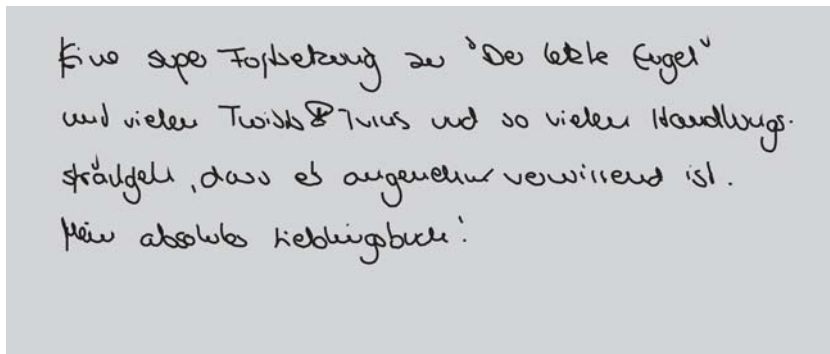 Eine super Fortsetzung zu "Der letzte Engel"
und vielen Twists & Turns und so vielen Handlungs-
strängen, dass es angenehm verwirrend ist.
Mein absolutes Lieblingsbuch!